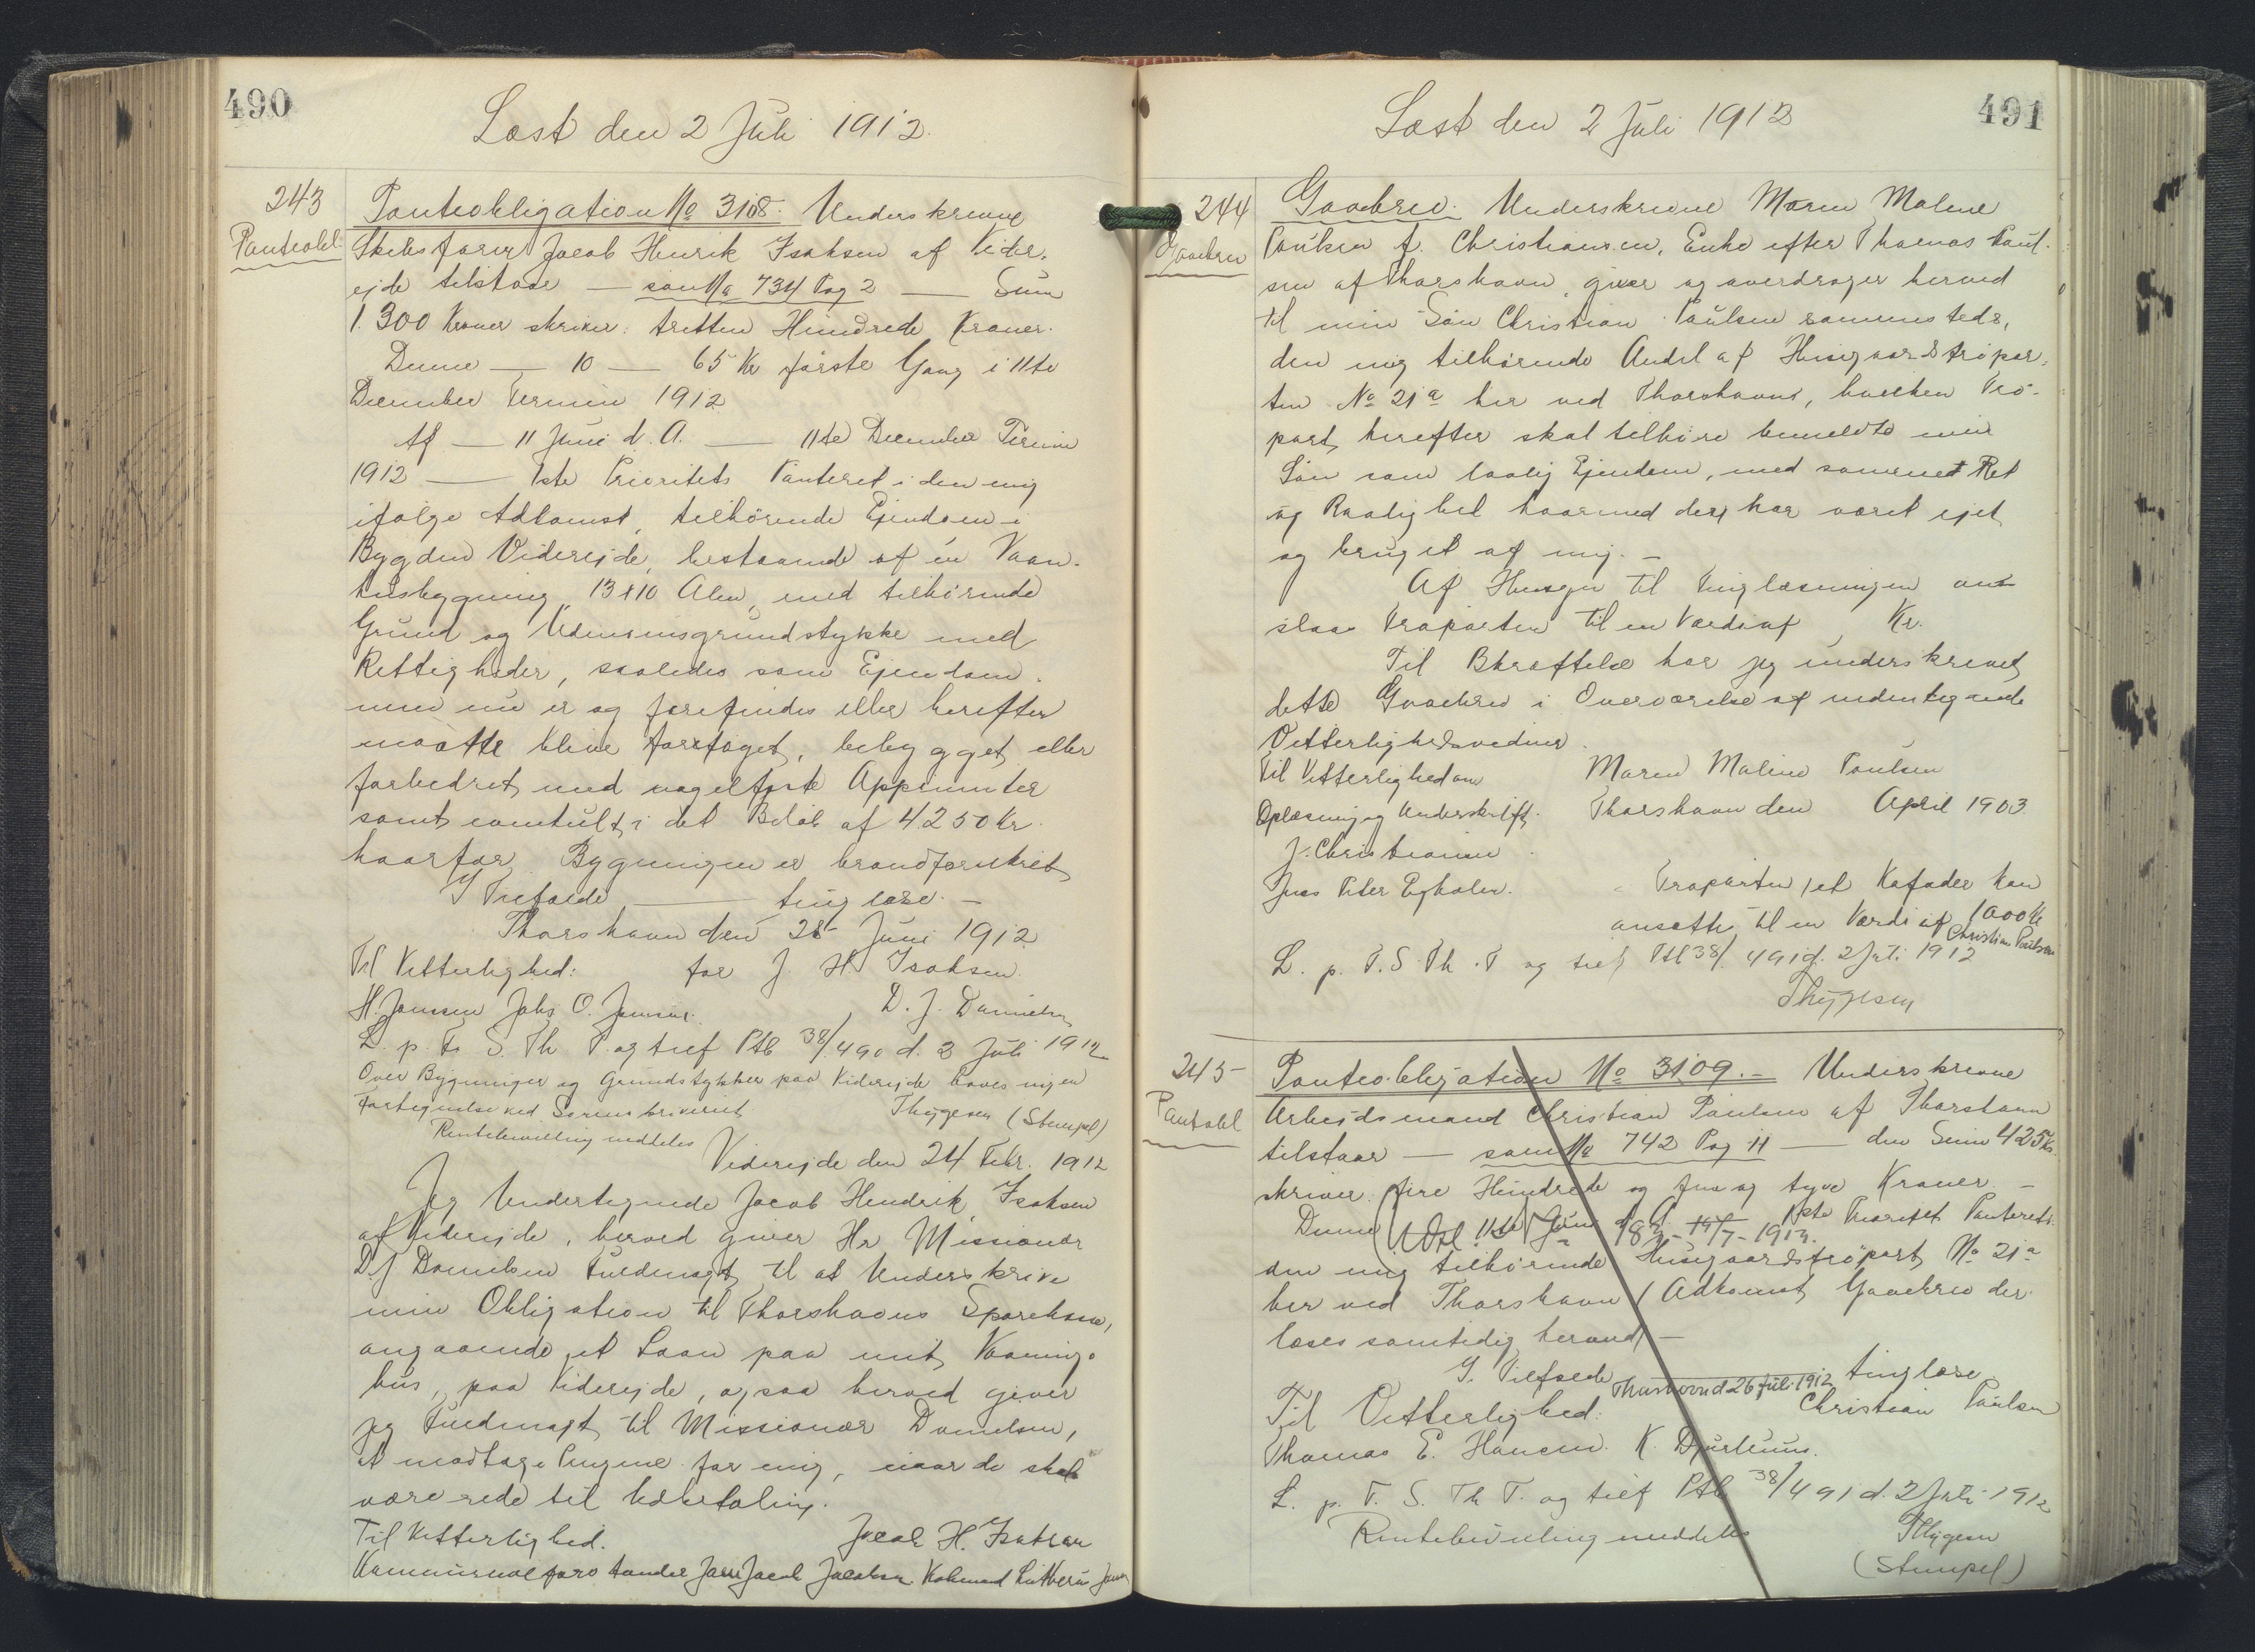 490
Læst den 2 Juli 1912.
243
Panteobl.
Panteobligation No 3108. Underskrevne
Skibsfører Jacob Henrik Isaksen af Vider-
ejde tilstaar — som No 734 Pag 2 — Sum
1.300 Kroner skriver: tretten Hundrede Kroner.
Denne — 10 — 65 Kr første Gang i 11te
December Termin 1912
Af — 11 Juni d. A. — 11te December Termin
1912 — 1ste Prioritets Panteret i den mig
ifølge Adkomst, tilhørende Ejendom i
Bygden Viderejde, bestaaende af en Vaan-
husbygning, 13 x 10 Alen, med tilhørende
Grund og Udmarksgrundstykke med
Rettigheder, saaledes som Ejendom-
men nu er og forefindes eller herefter
maatte blive foretaget, bebygget eller
forbedret med nagelfaste Appertinentier
samt eventuelt i det Beløb af 4250 Kr.
hvorfor Bygningen er brandforsikret
I Tilfælde — tinglæse. —
Thorshavn den 28 Juni 1912
Til Vitterlighed: for J. H. Isaksen.
H. Jensen Johs. O. Jensen. D. J. Danielsen
L. p. F. S. Th T. og tilf Ptb 38/490 d. 2 Juli 1912
Over Bygninger og Grundstykker paa Viderejde haves ingen
Fortegnelse ved Sorenskriveriet Thygesen (Stempel)
Rentebevilling meddeles
Viderejde den 24 Febr. 1912
Jeg Undertegnede Jacob Hendrik Isaksen
af Viderejde, herved giver Hr Missionær
D. J. Danielsen Fuldmagt til at Underskrive
min Obligation til Thorshavns Sparekasse,
angaaende et Laan paa mit Vaanings-
hus, paa Viderejde, ogsaa herved giver
jeg Fuldmagt til Missionær Danielsen,
at modtage Pengene for mig, naar de skal
være rede til Udbetaling.
Til Vitterlighed. Jacob H. Isaksen
Kommunalforstander Jacob Jacobsen
491
Læst den 2 Juli 1912
244
Gavebrev
Gavebrev. Underskrevne Maren Malene
Poulsen f. Christiansen, Enke efter Thomas Poul-
sen af Thorshavn, giver og overdrager herved
til min Søn Christian Poulsen sammesteds,
den mig tilhørende Andel af Husegaardstrøpar-
ten No 21a her ved Thorshavn, hvilken Trø-
part, herefter skal tilhøre bemeldte min
Søn som lovlig Ejendom, med samme Ret
og Raadighed hvormed den har været ejet
og bruget af mig. —
Af Hensyn til Tinglæsningen an-
slaas Trøparten til en Værdi af Kr.
Til Bkræftelse har jeg underskrevet
dette Gavebrev i Overværelse af undertegnede
Vitterlighedsvidner.
Til Vitterlighed om Maren Malene Poulsen
Oplæsning og Underskrift. Thorshavn den April 1903
J. Christiansen
Jens Peter Egholm. Trøparten jet Kafader kan
ansættes til en Værdi af 1000 Kr
Christian Poulsen
L. p. F. S. Th. T og tilf Ptb 38/491 d. 2 Juli 1912
Thygesen
245
Panteobl
Panteobligation No 3109. — Underskrevne
Arbejdsmand Christian Poulsen af Thorshavn
tilstaar — som No 742 Pag 11 — den Sum 425 Kr.
skriver fire Hundrede og fem og tyve Kroner. —
Denne 11te Juni d. A. 1ste Prioritet Panteret i
den mig tilhørende Husegaardstrøpart No 21a
her ved Thorshavn (Adkomst Gavebrev der
læses samtidig herved) —
I Tilfælde tinglæse
Thorshavn d 26 Juli 1912
Til Vitterlighed: Christian Poulsen
Thomas E. Hansen. K. Djurhuus.
L. p. F. S. Th T. og tilf Ptb 38/491 d. 2 Juli 1912
Rentebevilling meddeles Thygesen
(Stempel)